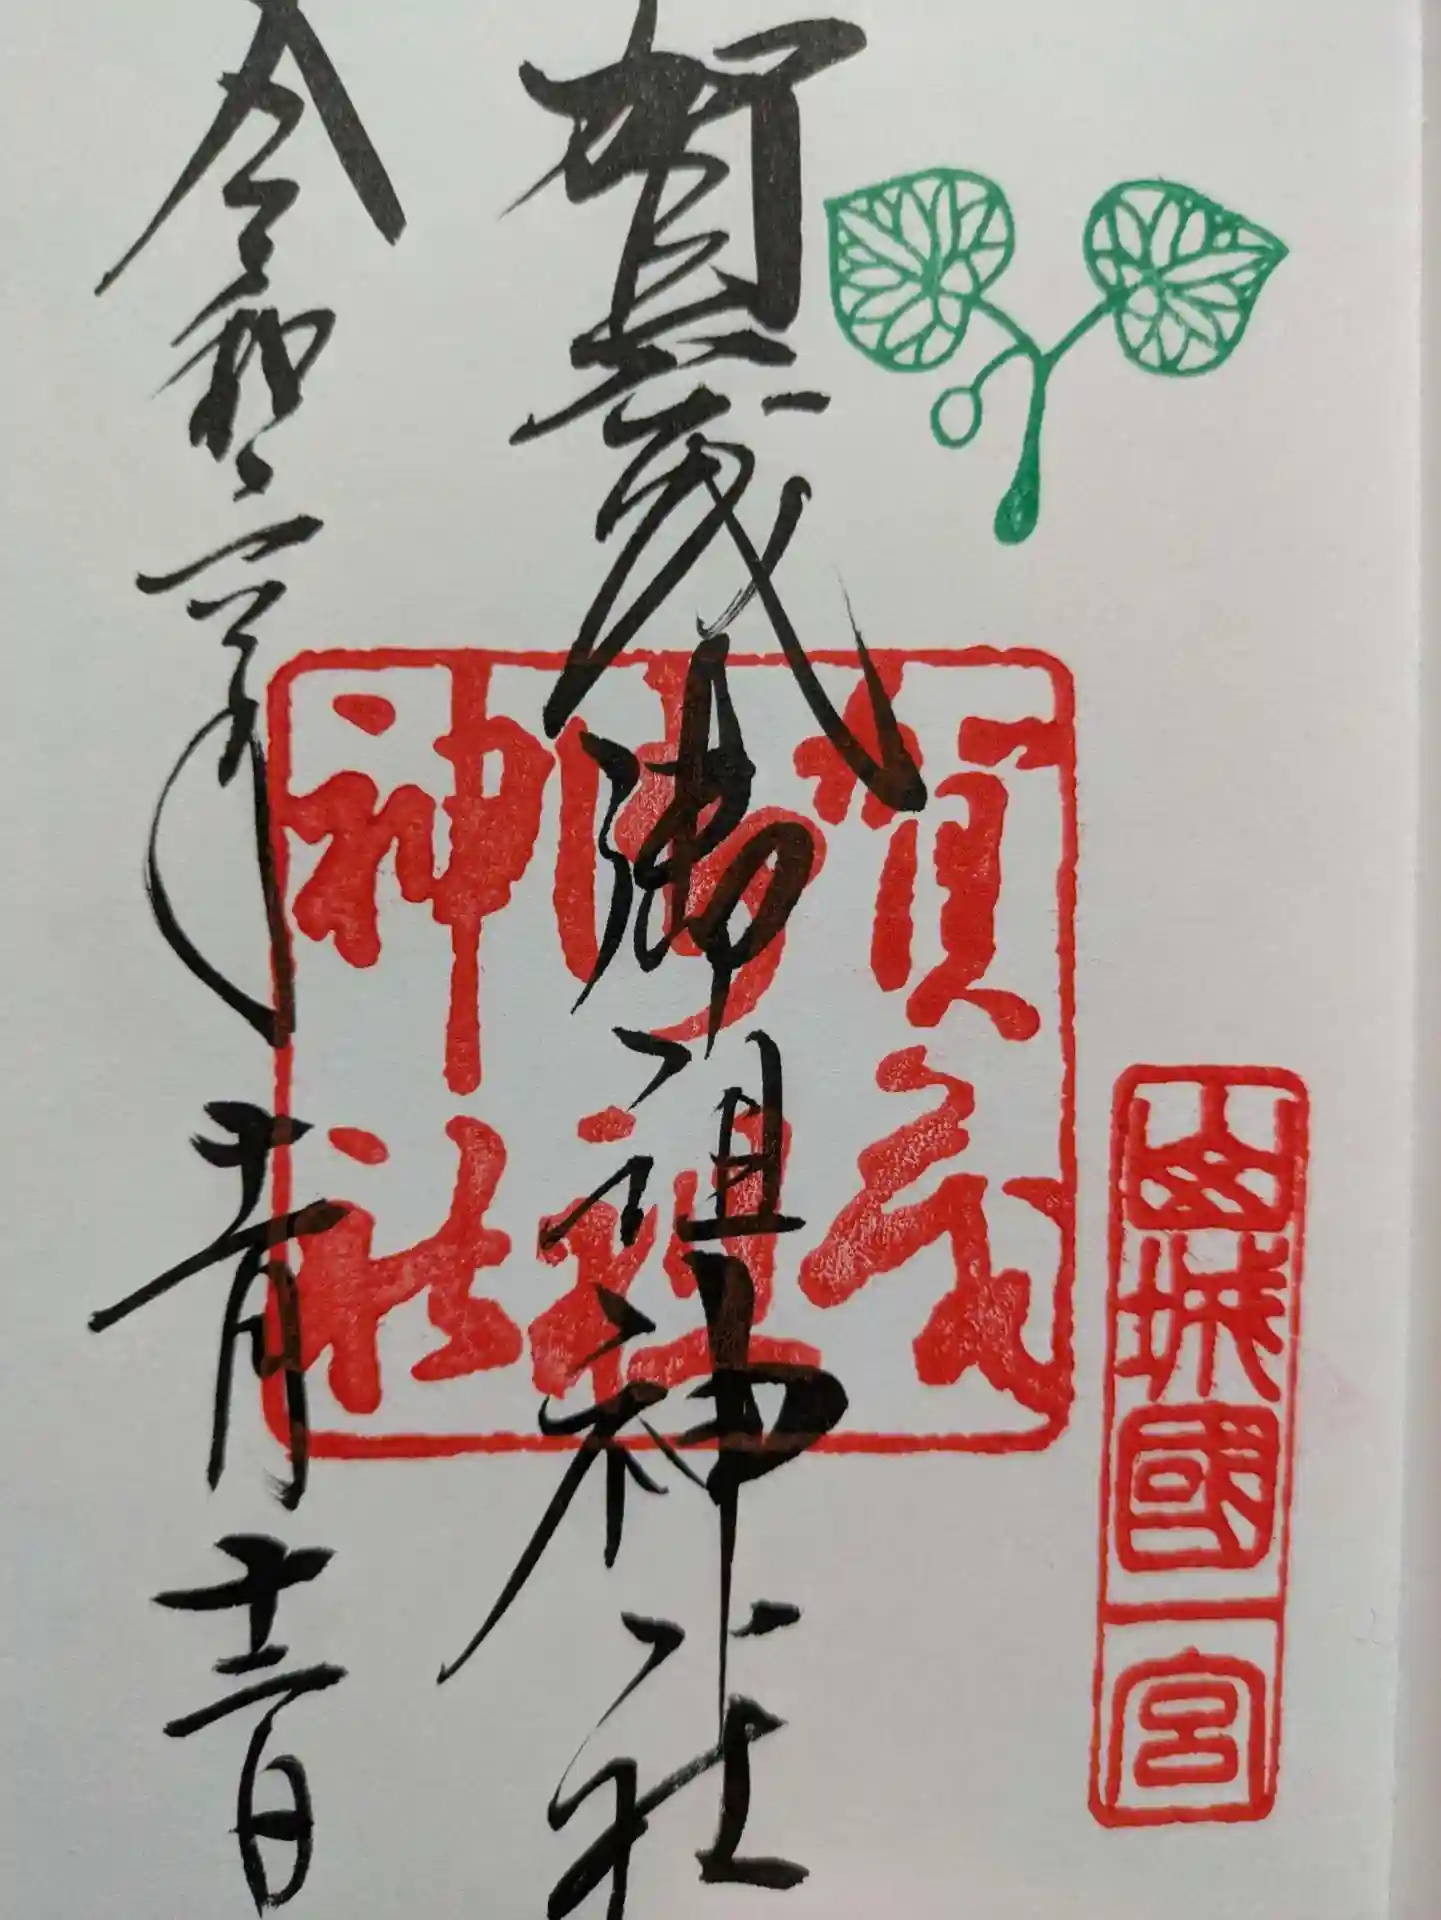 山城國一宮
賀茂御祖神社
賀茂御祖神社
令和二年十一月十二日